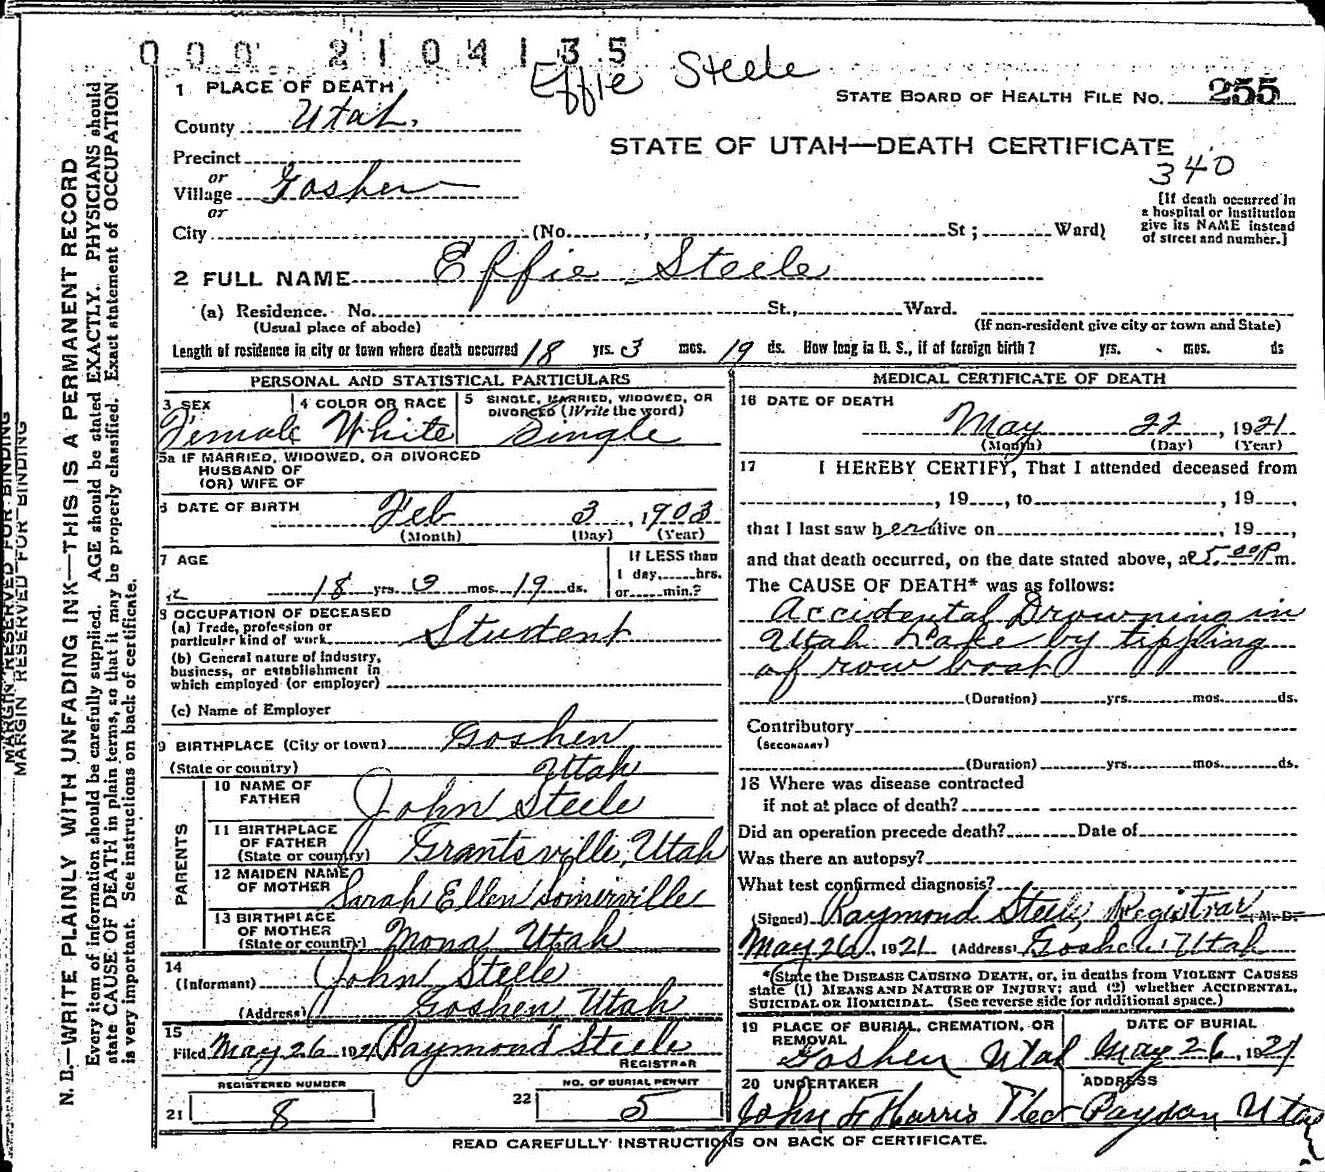 000 2104135
Effie Steele
STATE BOARD OF HEALTH FILE NO. 255
1 PLACE OF DEATH
County Utah.
STATE OF UTAH—DEATH CERTIFICATE
340
Precinct
or
Village Goshen
or
City (No. , St; Ward)
[If death occurred in
a hospital or institution
give its NAME instead
of street and number.]
2 FULL NAME Effie Steele
(a) Residence. No. St., Ward.
(Usual place of abode) (If non-resident give city or town and State)
Length of residence in city or town where death occurred 18 yrs. 3 mos. 19 ds. How long in U. S., if of foreign birth? yrs. mos. ds
PERSONAL AND STATISTICAL PARTICULARS
3 SEX
Female
4 COLOR OR RACE
White
5 SINGLE, MARRIED, WIDOWED, OR
DIVORCED (Write the word)
Single
5a IF MARRIED, WIDOWED, OR DIVORCED
HUSBAND OF
(OR) WIFE OF
6 DATE OF BIRTH Feb 3, 1903
(Month) (Day) (Year)
7 AGE
18 yrs 3 mos. 19 ds.
If LESS than
1 day, hrs.
or min.?
8 OCCUPATION OF DECEASED
(a) Trade, profession or
particular kind of work Student
(b) General nature of Industry,
business, or establishment in
which employed (or employer)
(c) Name of Employer
9 BIRTHPLACE (City or town) Goshen
(State or country) Utah
PARENTS
10 NAME OF
FATHER John Steele
11 BIRTHPLACE
OF FATHER
(State or country) Grantsville, Utah
12 MAIDEN NAME
OF MOTHER Sarah Ellen Somerville
13 BIRTHPLACE
OF MOTHER
(State or country) Mona Utah
14
(Informant) John Steele
(Address) Goshen Utah
15
Filed May 26 1921 Raymond Steele
REGISTRAR
REGISTERED NUMBER
21 8
NO. OF BURIAL PERMIT
22 5
MEDICAL CERTIFICATE OF DEATH
16 DATE OF DEATH
May 22, 1921
(Month) (Day) (Year)
17 I HEREBY CERTIFY, That I attended deceased from
, 19 , to , 19 ,
that I last saw her alive on , 19 ,
and that death occurred, on the date stated above, at 5:00 P m.
The CAUSE OF DEATH* was as follows:
Accidental Drowning in
Utah Lake by tippling
of row boat
(Duration) yrs. mos. ds.
Contributory
(SECONDARY)
(Duration) yrs. mos. ds.
18 Where was disease contracted
if not at place of death?
Did an operation precede death? Date of
Was there an autopsy?
What test confirmed diagnosis?
(Signed) Raymond Steele, Registrar M. D.
May 26, 1921 (Address) Goshen Utah
*(State the DISEASE CAUSING DEATH, or, in deaths from VIOLENT CAUSES
state (1) MEANS AND NATURE OF INJURY; and (2) whether ACCIDENTAL,
SUICIDAL OR HOMICIDAL. (See reverse side for additional space.)
19 PLACE OF BURIAL, CREMATION, OR
REMOVAL
Goshen Utah
DATE OF BURIAL
May 26, 1921
20 UNDERTAKER
John F Harris
ADDRESS
Payson Utah
READ CAREFULLY INSTRUCTIONS ON BACK OF CERTIFICATE.
MARGIN RESERVED FOR BINDING
MARGIN RESERVED FOR BINDING
N. B.—WRITE PLAINLY WITH UNFADING INK—THIS IS A PERMANENT RECORD
Every item of information should be carefully supplied. AGE should be stated EXACTLY. PHYSICIANS should
state CAUSE OF DEATH in plain terms, so that it may be properly classified. Exact statement of OCCUPATION
is very important. See instructions on back of certificate.